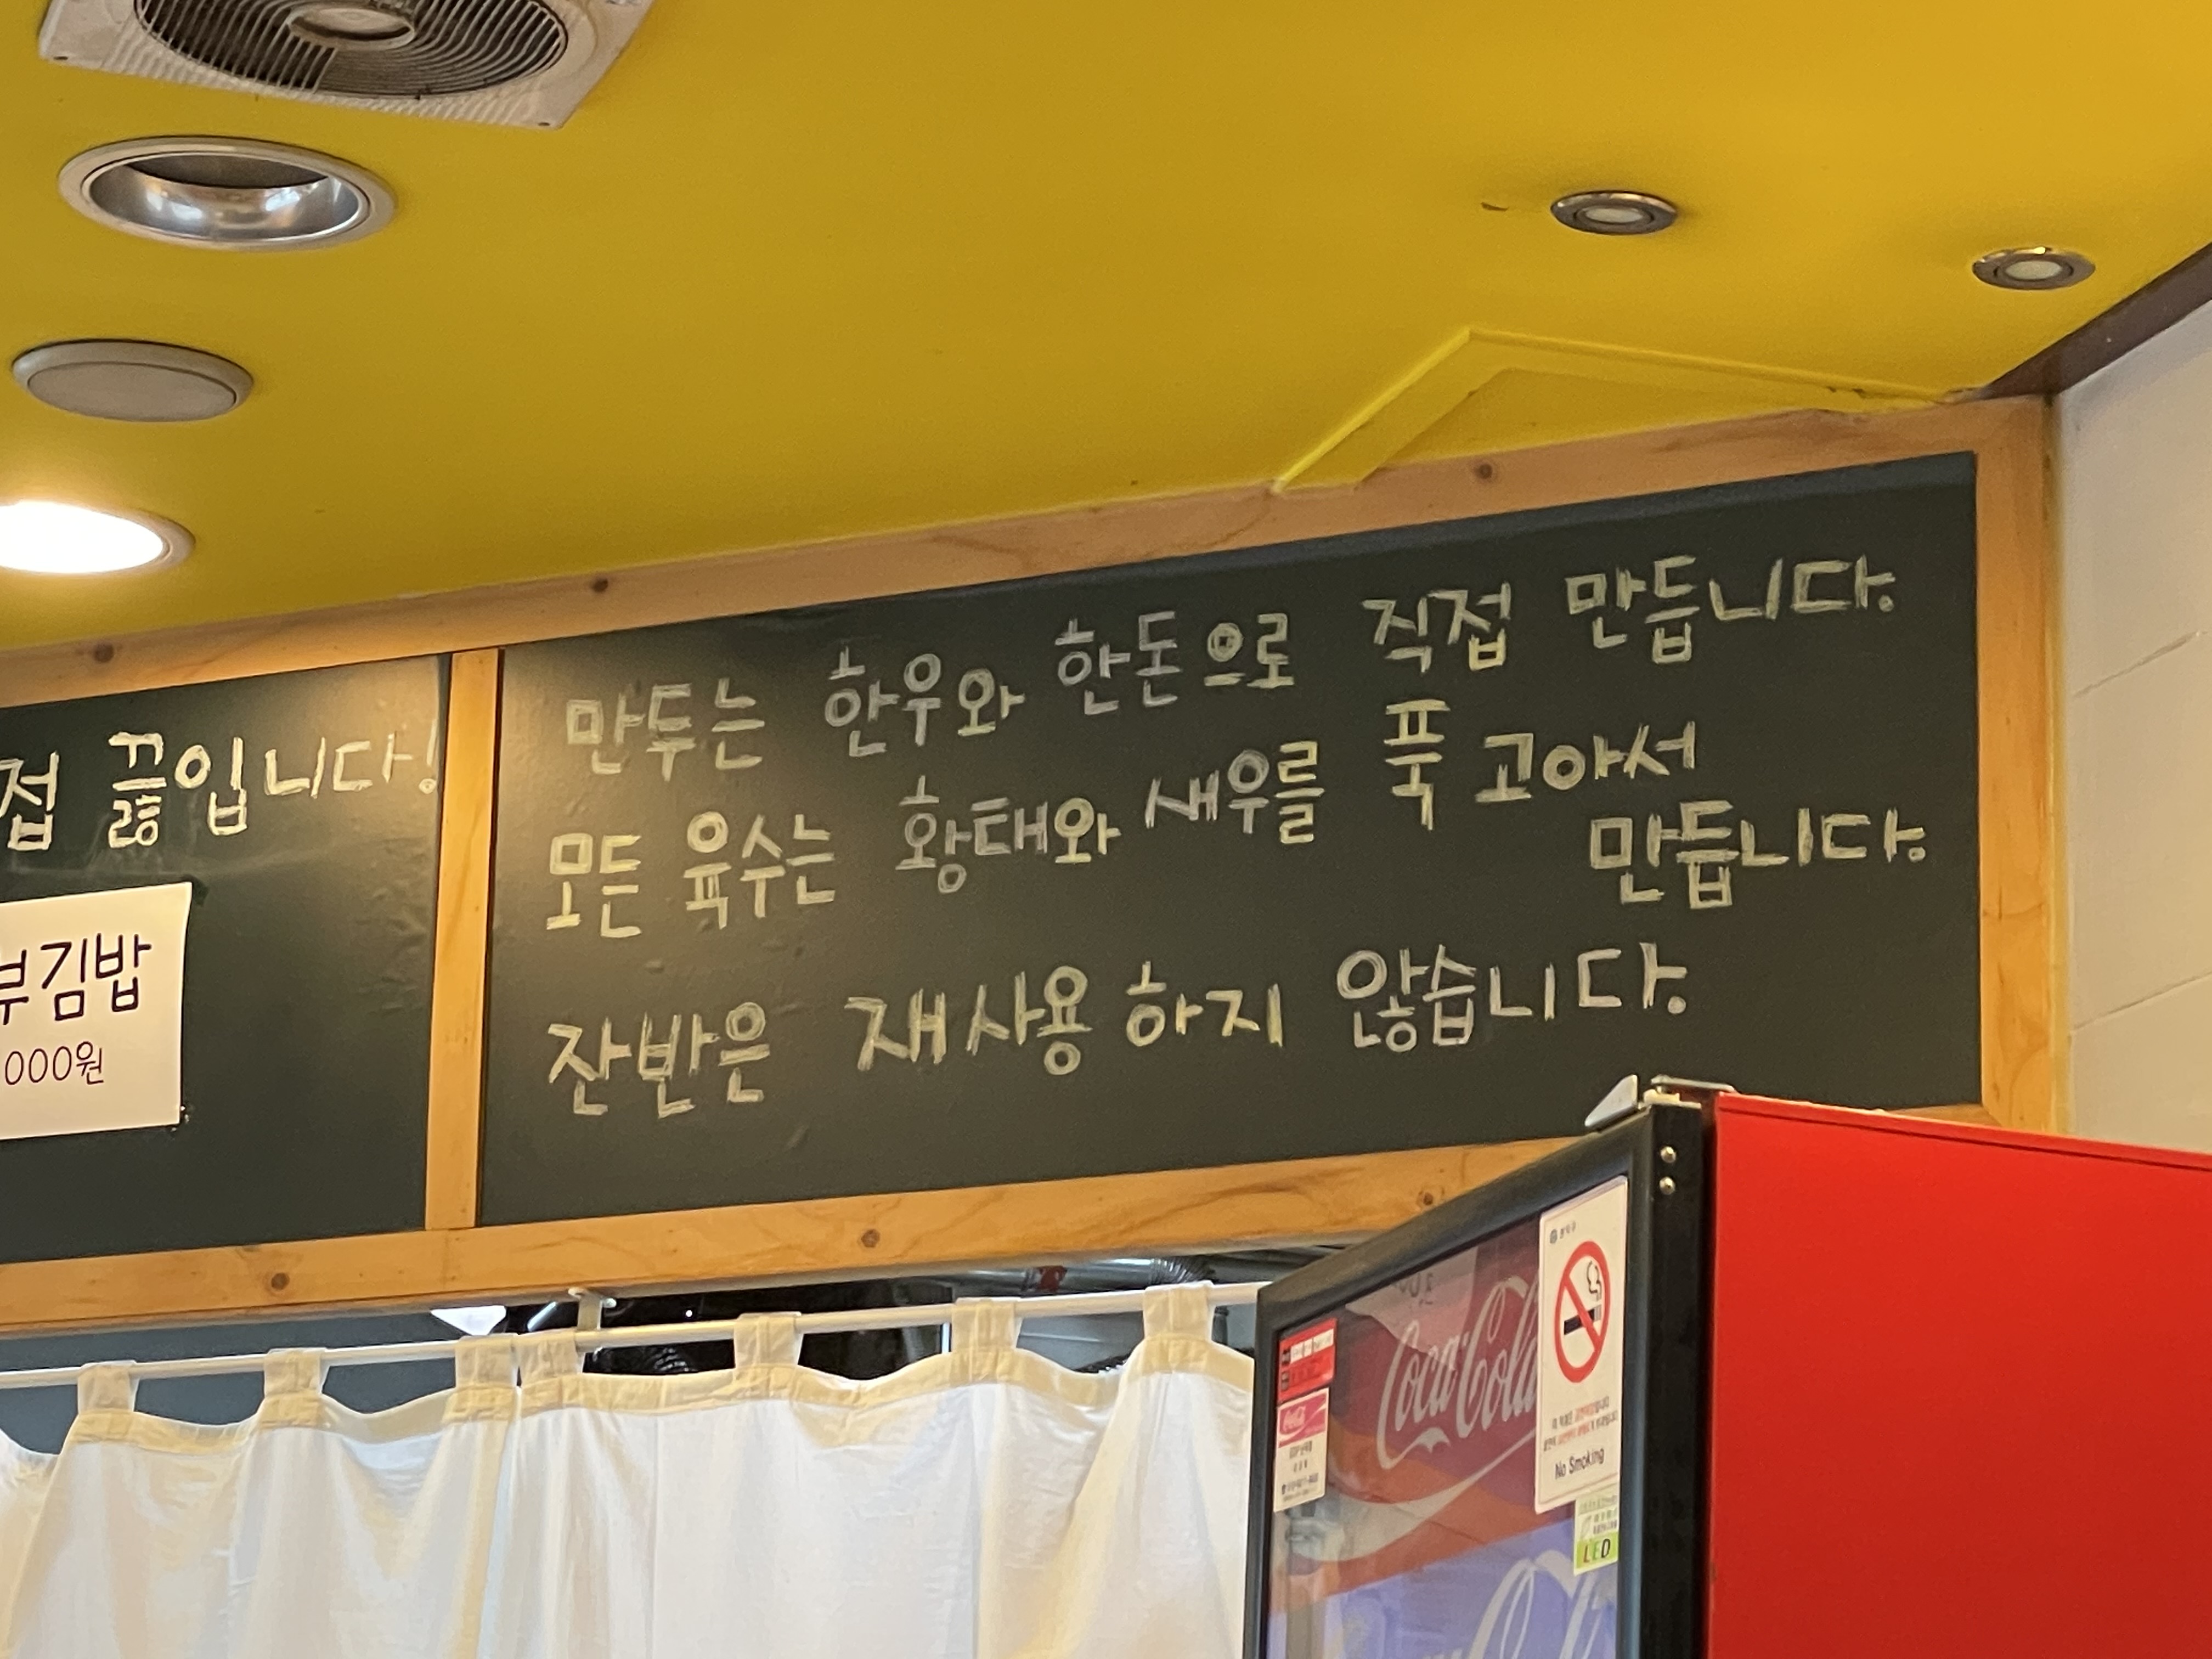 만두는 한우와 한돈으로 직접 만듭니다.
모든 육수는 황태와 새우를 푹 고아서
만듭니다.
잔반은 재사용 하지 않습니다.
접 끓입니다!
부김밥
000원
Coca-Cola
No Smoking
LED